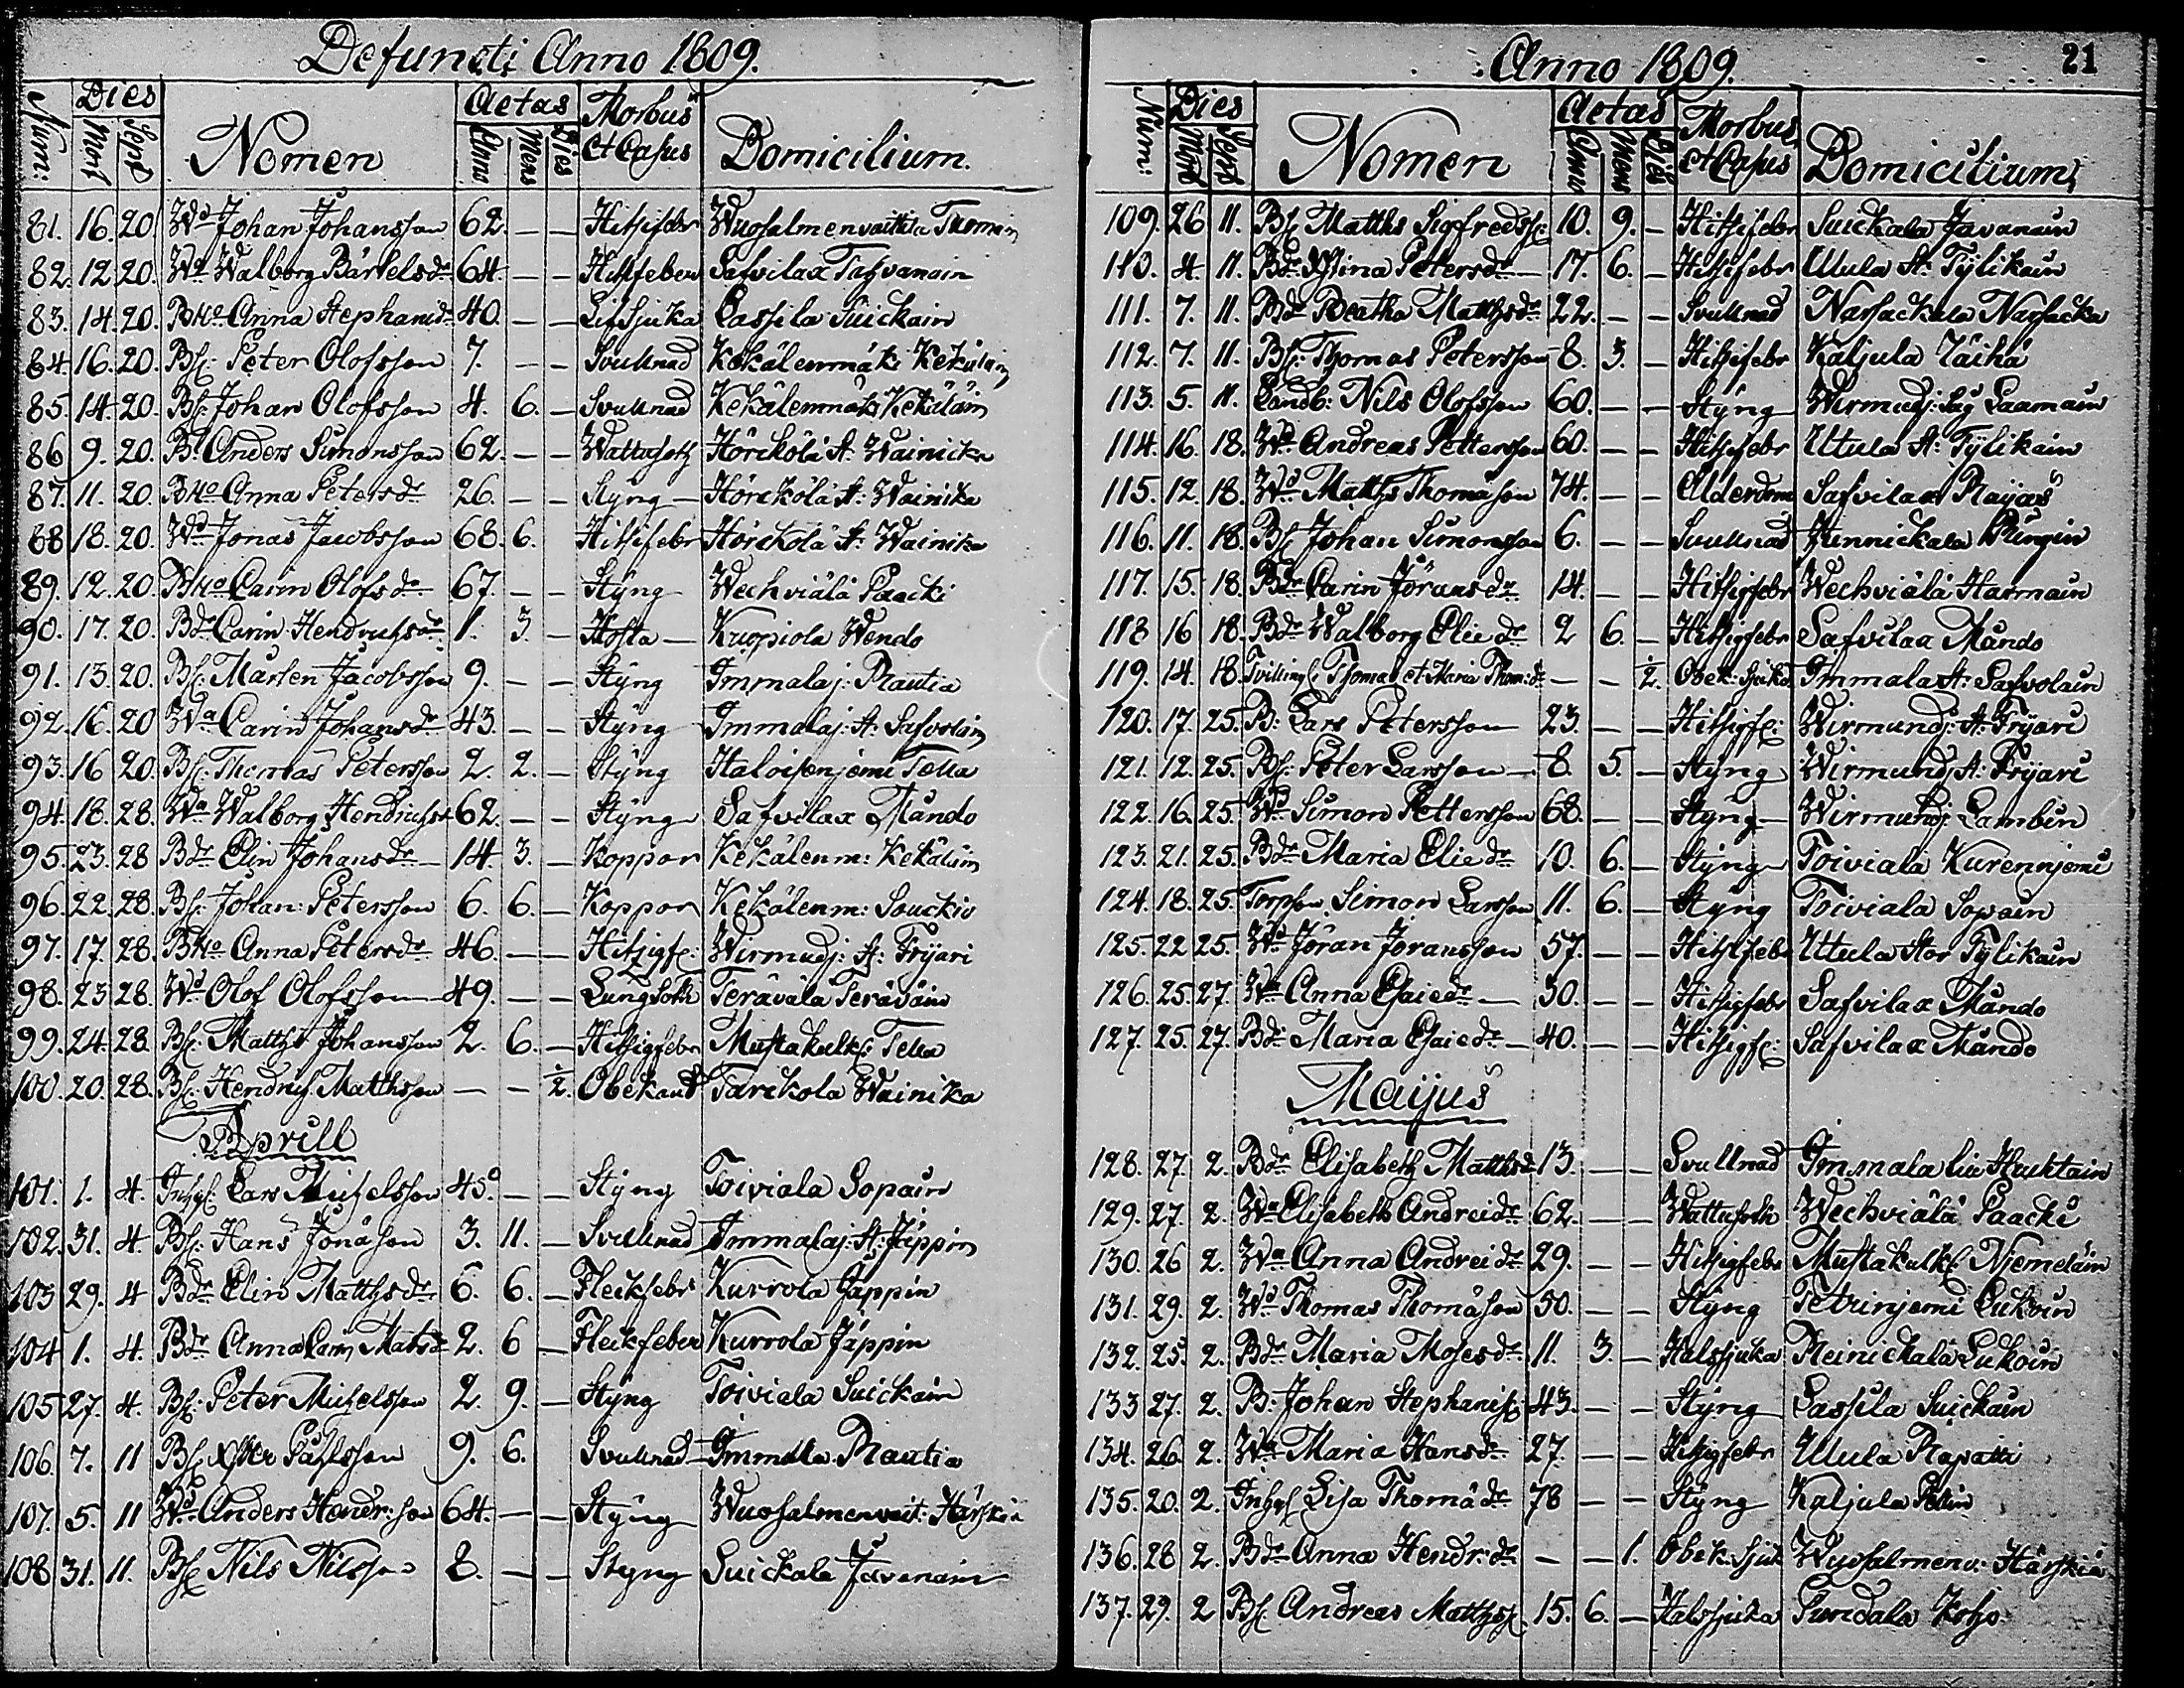 Defuncti Anno 1809.
Num: Dies Mort Sept Nomen Aetas Anno Mens Dies Morbus et Casus Domicilium.
81. 16. 20. Wd Johan Johansson 62. — — Hitsifebr Wuosalmenvaittila Tuomin
82. 12. 20. Wa Walborg Bärtelsdr 64. — — Hitsfeber Safvilax Tahvanain
83. 14. 20. BHo Anna Stephanidr 40. — — Lifsjuka Lassila Suickain
84. 16. 20. Bs: Peter Olofsson 7. — — Svullnad Kekälenmäki Kekäläin
85. 14. 20. Bs: Johan Olofsson 4. 6. — Svullnad Kekälenmäki Kekäläin
86 9. 20. B: Anders Simonsson 62. — — Wattusoth Hörckölä St: Wainicka
87. 11. 20. BHo Anna Petersdr 26. — — Styng Hörckölä St: Wainika
88 18. 20. Wd Jonas Jacobsson 68. 6. Hitsifebr Hörckölä St: Wainika
89. 12. 20. BHo Carin Olofsdr 67. — — Styng Wechviälä Paacki
90. 17. 20. Bdr Carin Hendrichsdr 1. 3. — Hosta — Kuopiola Wendo
91. 13. 20. Bs: Mårten Jacobsson 9. — — Styng Immalaj: Rautia
92. 16. 20 Wa Carin Johansdr 43. — — Styng Immalaj: St: Safvolain
93. 16 20. Bs: Thomas Petersson 2. 2. — Styng Haloisenjemi Tella
94. 18. 28. Wa Walborg Hendrichsdr 62. — — Styng Safvilax Mändo
95. 23. 28 Bdr Elin Johansdr — 14. 3. — Koppor Kekälenm: Kekäläin
96. 22. 28. Bs: Johan: Petersson 6. 6. — Koppor Kekälenm: Souckio
97. 17. 28. BHo Anna Petersdr 46. — — Hitzigf: Wirmudj: St: Tryari
98. 23 28. Wd Olof Olofsson 49. — — Lungsoth Terävälä Teräväin
99. 24. 28. Bs: Matths Johansson 2. 6. — Hitsigfebr Mustakulks: Tella
100. 20. 28. Bs: Hendrich Matthsson — — ½. Obekant Tarckola Wainika
Aprill
101. 1. 4. Inhys: Lars Michelsson 45. — — Styng Toiviala Sopain
102. 31. 4. Bs: Hans Jonäson 3. 11. — Svullnad Immalaj: St: Jäppin
103 29. 4 Bdr Elin Matthsdr 6. 6. — Fleckfebr Kurrola Jäppin
104 1. 4. Bdr Anna Carin Matsdr 2. 6 — Fleckfeber Kurrola Jäppin
105 27. 4. Bs: Peter Michelsson 2. 9. — Styng Toiviala Suickain
106. 7. 11 Bs: Påhlsson 9. 6. Svullnad Immala Rautia
107. 5. 11 Wd Anders Hendr:son 64. — — Styng Wuosalmenvait: Härskiä
108 31. 11. Bs Nils Nilsson 8. — — Styng Suickala Javanain
Anno 1809. 21
Num: Dies Mort Sept Nomen Aetas Anno Mens Dies Morbus et Casus Domicilium
109. 26 11. Bs: Matths Sigfredss: 10. 9. — Hitsifebr Suickala Javanain
110. 4. 11. Bdr Xstina Petersdr — 17. 6. — Hitsifebr Utula St: Tylikain
111. 7. 11. Bdr Beatha Matthsdr 22. — — Svullnad Narsackala Narsacka
112. 7. 11. Bs: Thomas Petersson 8. 3. — Hitsifebr Kaljula Räihä
113. 5. 11. Landb: Nils Olofsson 60. — — Styng Wirmudj: Såg Saamain
114. 16. 18. Wd Andreas Pettersson 60. — — Hitsifebr Utula St: Tylikain
115. 12. 18. Wd Matths Thomäson 74. — — Ålderdom Safvilax
116. 11. 18. Bs Johan Simonsson 6. — — Svullnad Junnickala
117. 15. 18. Bdr Carin Jöransdr 14. — — Hitsigfebr Wechviälä Harmain
118 16 18. Bdr Walborg Eliedr 2 6. — Hitsigfebr Safvilax Mändo
119. 14. 18. Tvilling: Thomas et Maria Thom:dr — — ½. Obek: sjukd Immala St: Safvolain
120. 17. 25. B: Lars Petersson 23. — — Hitsigf: Wirmundj: St: Tryari
121. 12. 25. Bs: Peter Larsson — 8. 5. — Styng Wirmundj: St: Tryari
122. 16. 25. Wd Simon Pettersson 68. — — Styng Wirmundj: Lambin
123. 21. 25. Bdr Maria Eliedr 10. 6. — Styng Toiviala Kurennjemi
124. 18. 25. Torpson Simon Larsson 11. 6. — Styng Toiviala Sopain
125. 22 25. Wd Jöran Joransson 57. — — Hitsifebr Utula Stor Tylikain
126. 25. 27. Wa Anna Esaiedr — 30. — — Hitsigfebr Safvilax Mändo
127. 25. 27. Bdr Maria Esaiedr — 40. — — Hitsigf: Safvilax Mändo
Maijus
128. 27. 2. Bdr Elisabeth Matthsdr 13. — — Svullnad Immala
129. 27. 2. Wa Elisabeth Andreidr 62. — — Wattusoth Wechviälä Paacki
130. 26 2. Wa Anna Andreidr 29. — — Hitsigfebr Mustakulks: Njemeläin
131. 29. 2. Wd Thomas Thomäson 50. — — Styng Petrinjemi Lukoin
132. 25. 2. Bdr Maria Mosesdr 11. 3. — Halssjuka Reinickala Lukoin
133 27. 2. B: Johan Stephanis: 43. — — Styng Lassila Suickain
134. 26. 2. Wa Maria Hansdr 27. — — Hitsigfebr Utula Rapatti
135. 20. 2. Inhys Lisa Thomädr 78 — — Styng Kaljula
136. 28 2. Bdr Anna Hendr:dr — — 1. Obek: Sjuk Wuosalmenv: Härskiä
137. 29. 2 Bs Andreas Matthss: 15. 6. — Halssjuka Purdala Koho